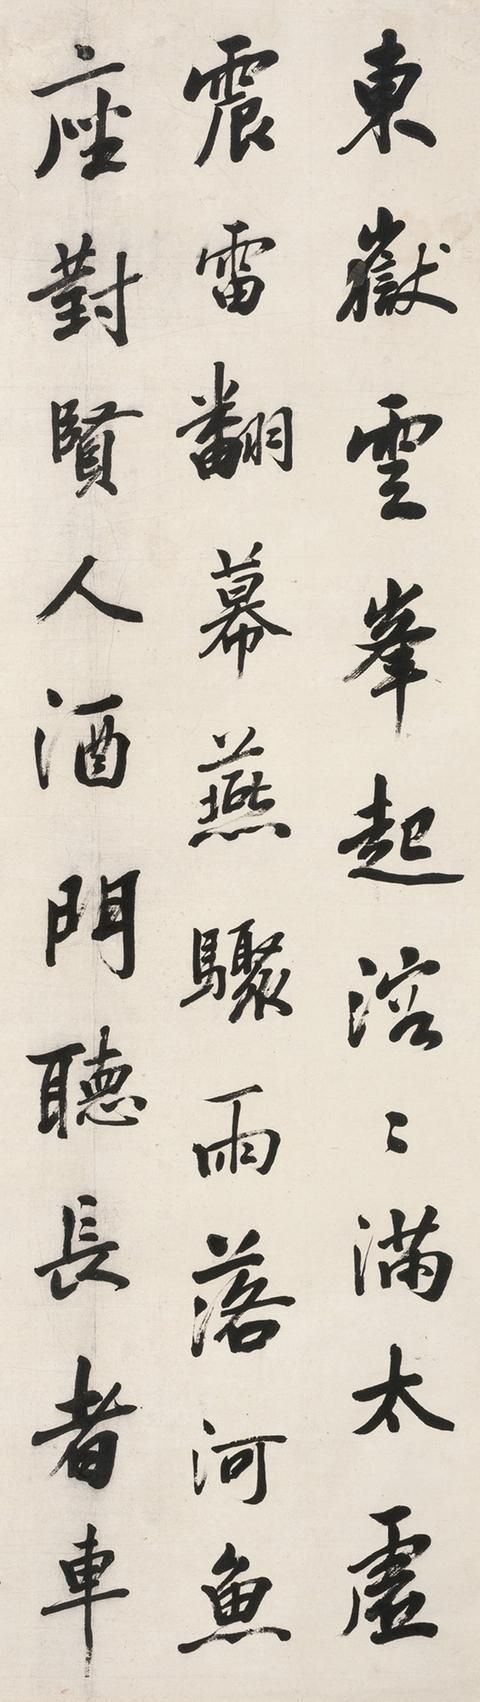 東嶽雲峯起溶〻滿太虛
震雷翻幕燕驟雨落河魚
座對賢人酒門聽長者車